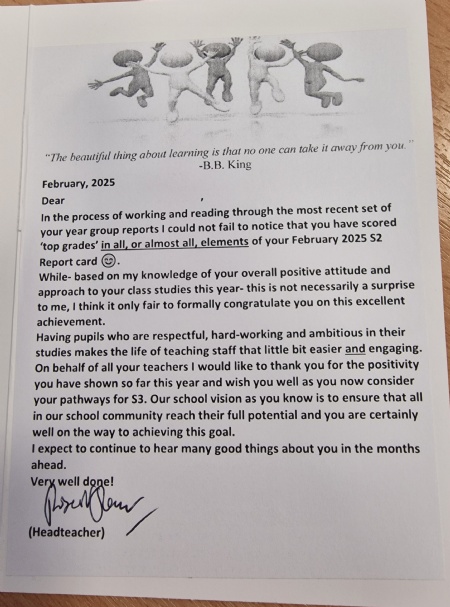 “The beautiful thing about learning is that no one can take it away from you.”
-B.B. King
February, 2025
Dear ,
In the process of working and reading through the most recent set of
your year group reports I could not fail to notice that you have scored
‘top grades’ in all, or almost all, elements of your February 2025 S2
Report card 😊.
While- based on my knowledge of your overall positive attitude and
approach to your class studies this year- this is not necessarily a surprise
to me, I think it only fair to formally congratulate you on this excellent
achievement.
Having pupils who are respectful, hard-working and ambitious in their
studies makes the life of teaching staff that little bit easier and engaging.
On behalf of all your teachers I would like to thank you for the positivity
you have shown so far this year and wish you well as you now consider
your pathways for S3. Our school vision as you know is to ensure that all
in our school community reach their full potential and you are certainly
well on the way to achieving this goal.
I expect to continue to hear many good things about you in the months
ahead.
Very well done!
(Headteacher)